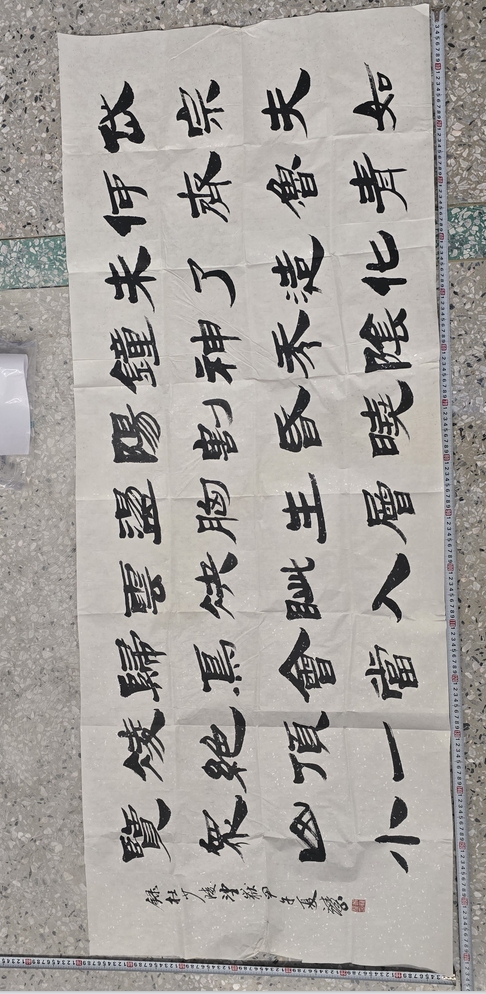 岱宗夫如
何齊魯青
未了造化
鐘神秀陰
陽割昏曉
盪胸生層
雲決眥入
歸鳥會當
凌絕頂一
覽眾山小
錄杜少陵望嶽甲午夏